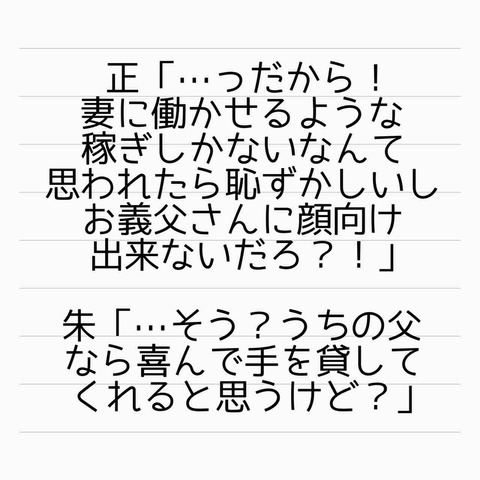 正「…っだから！
妻に働かせるような
稼ぎしかないなんて
思われたら恥ずかしいし
お義父さんに顔向け
出来ないだろ？！」
朱「…そう？うちの父
なら喜んで手を貸して
くれると思うけど？」